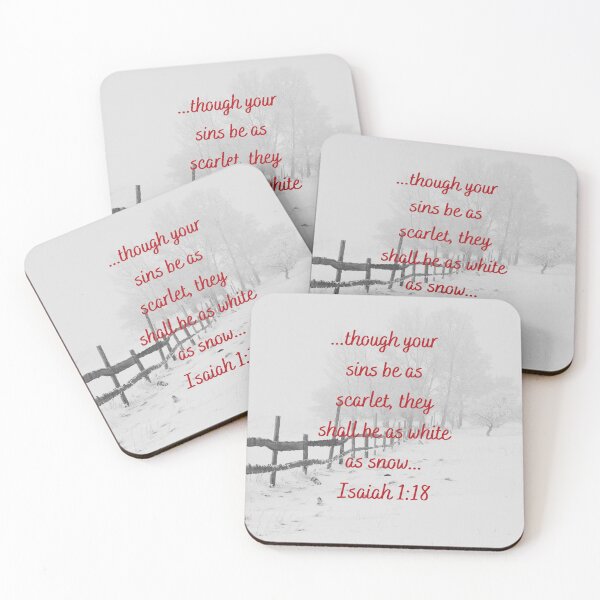 ...though your
sins be as
scarlet, they
white
...though your
sins be as
scarlet, they
shall be as white
as snow...
...though your
sins be as
scarlet, they
shall be as white
as snow...
Isaiah 1:
...though your
sins be as
scarlet, they
shall be as white
as snow...
Isaiah 1:18